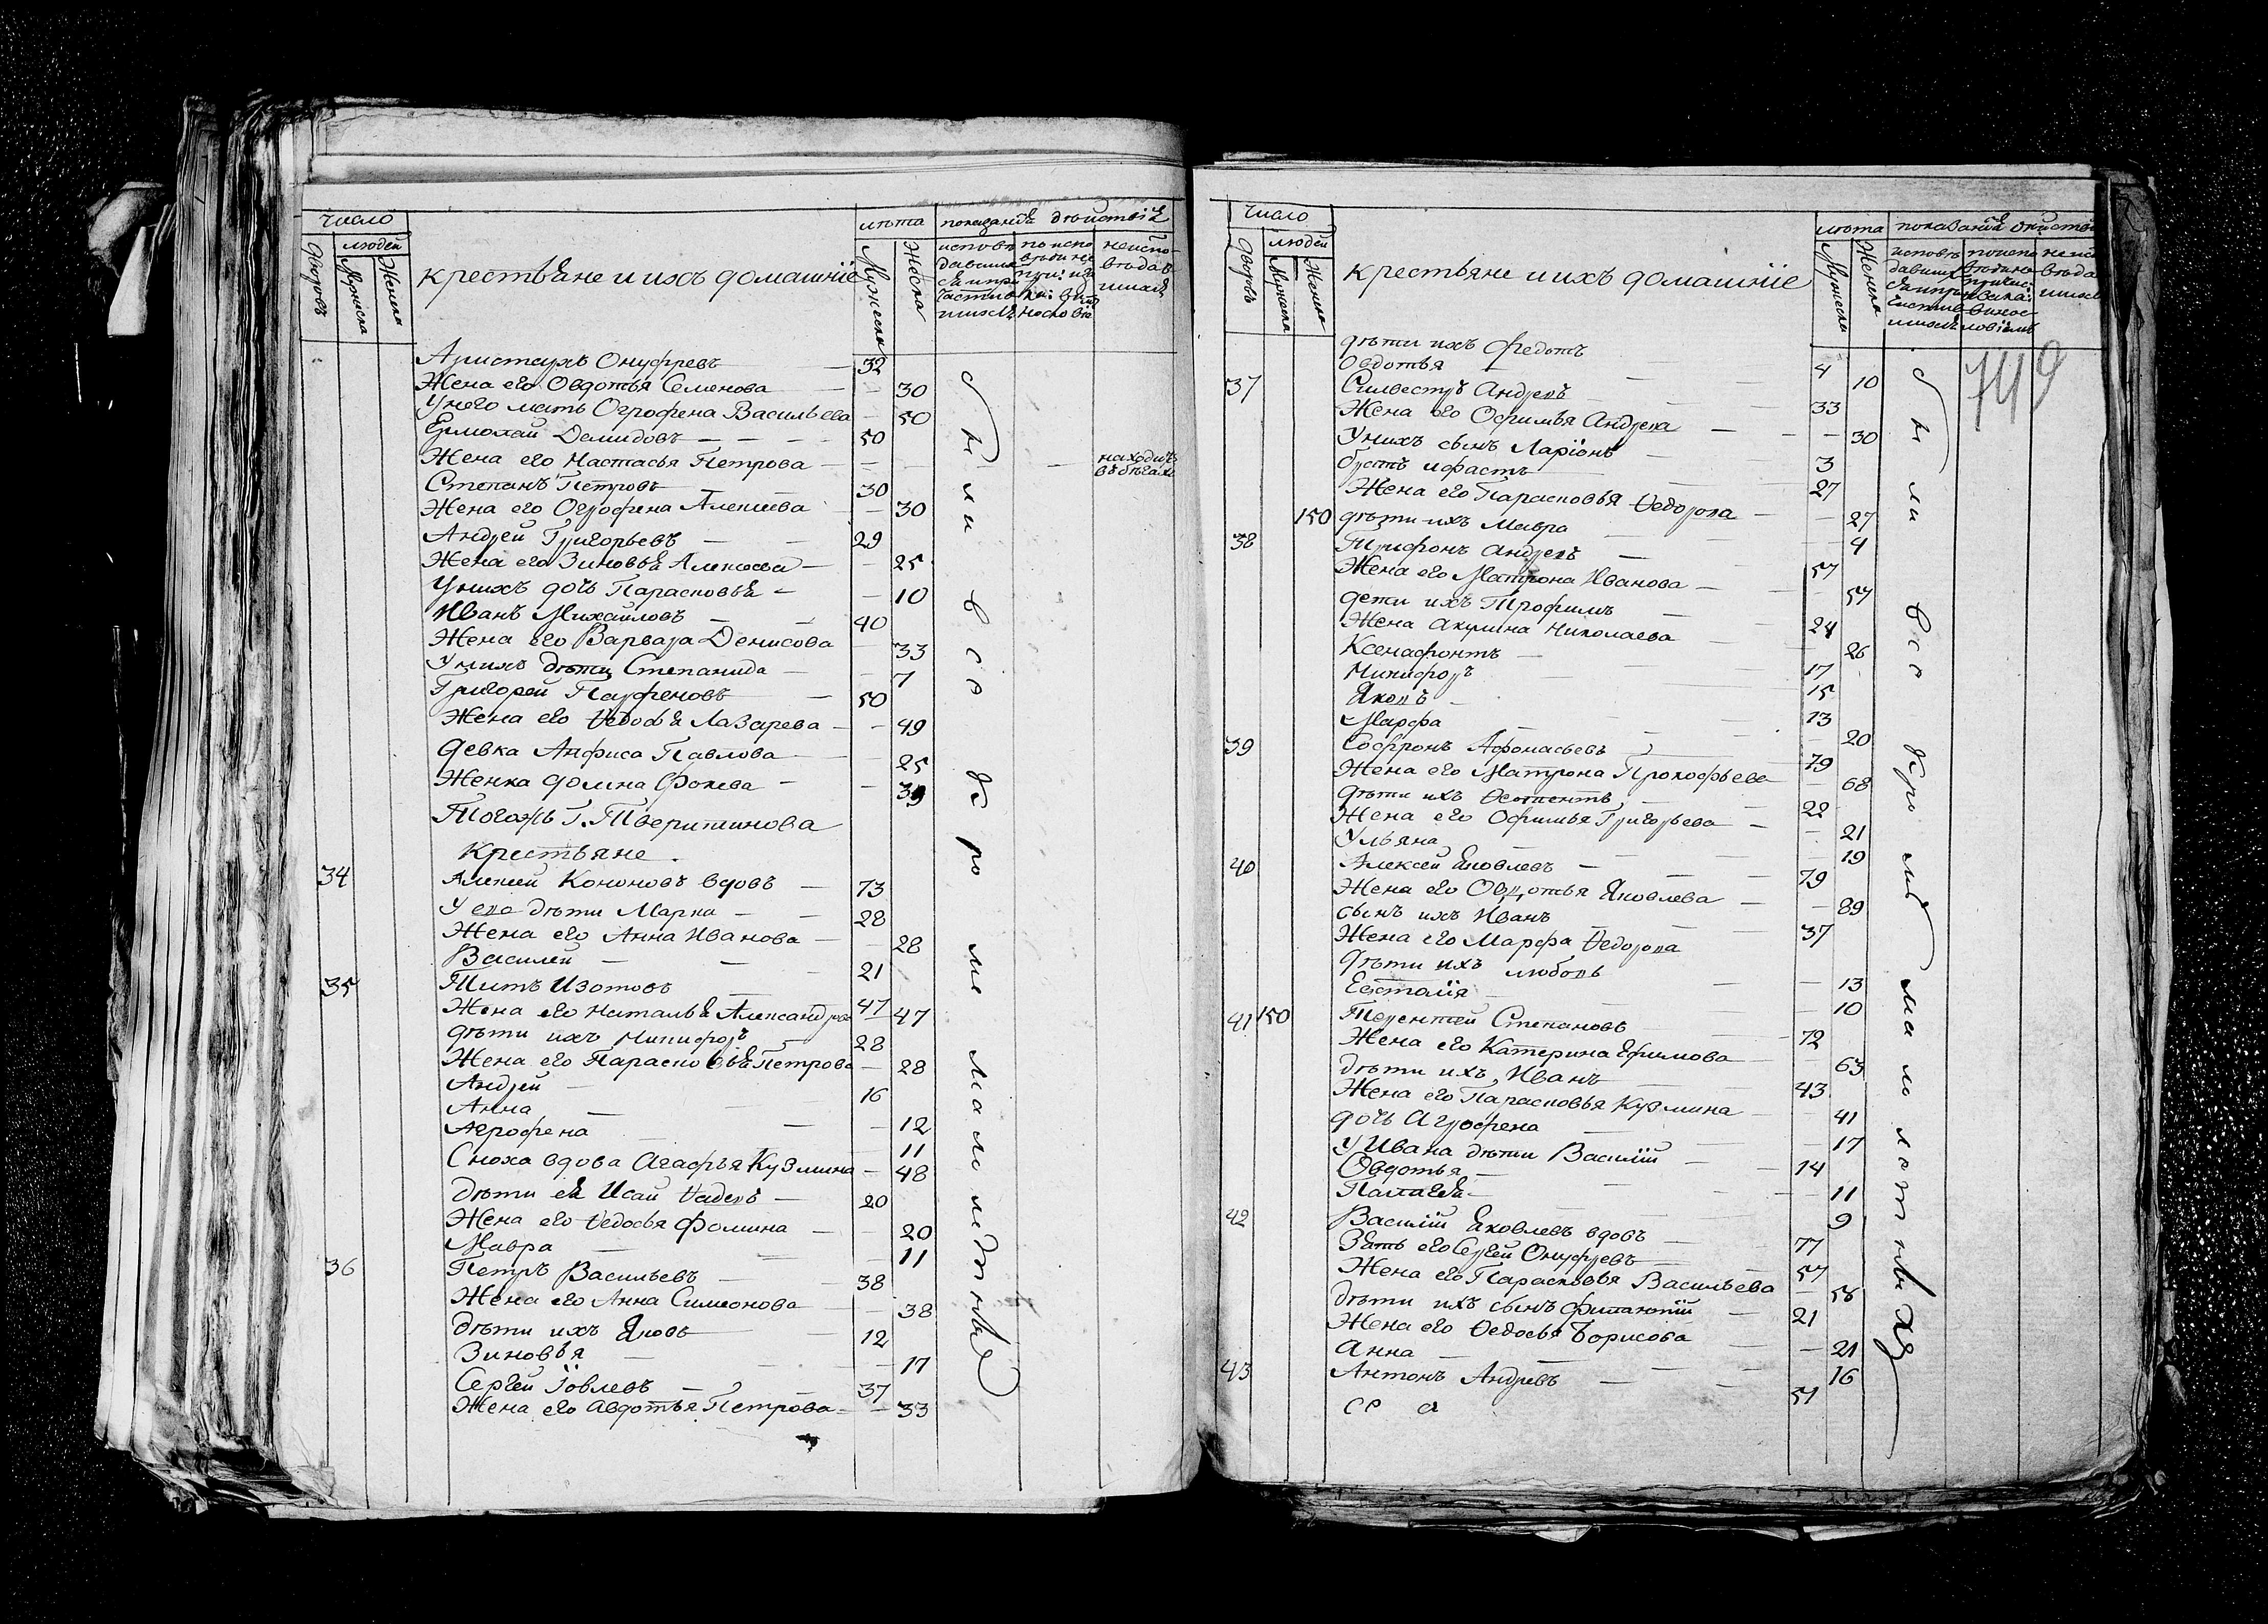 число
людей
Дворовъ
Мужеска
Женска
Крестьяне и ихъ домашніе
лѣта
Мужеска
Женска
показаніе дѣйствіе
Аристархъ Онуфревъ — 32
Жена его Овдотья Семенова — — 30
У него мать Огрофена Васильева — 50
Ермолай Демидовъ — — — 50
Жена его Настасья Петрова — — — находитъ въ бѣгахъ
Степанъ Петровъ — — 30
Жена его Огрофена Алексѣева — 30
Андрей Григорьевъ — — 29
Жена его Зиновья Алексѣева — — 25
У нихъ дочь Парасковья — — 10
Иванъ Михайловъ — — 40
Жена его Варвара Денисова — 33
У нихъ дѣти Степанида — — 7
Григорей Парфеновъ — 50
Жена его Ѳедосья Лазарева — — 49
девка Анфиса Павлова — — 25
Женка домна Фокева — — 39
Тогожъ Г. Тверитинова
Крестьяне.
34 Алексей Кононовъ вдовъ — 73
У ево дѣти Марка — — 28
Жена его Анна Иванова — — 28
Василей — — 21
35 Титъ Изотовъ — 47
Жена его Наталья Александрова — 47
дѣти ихъ Никифоръ — 28
Жена его Парасковья Петрова — 28
Андрей — 16
Анна — — — 12
Агрофена — 11
Сноха вдова Агафья Кузмина — 48
Дѣти ея Исай Ѳадевъ — 20
Жена его Ѳедосья Фомина — — 20
Мавра — — — 11
36 Петръ Васильевъ — — 38
Жена его Анна Симеонова — — 38
Дѣти ихъ Яковъ — 12
Зиновья — — — 17
Сергей Іовлевъ — — 37
Жена его Авдотья Петрова — — 33
были вси кроме малолетныхъ
число
людей
Дворовъ
Мужеска
Женска
Крестьяне и ихъ домашніе
лѣта
Мужеска
Женска
749
дѣти ихъ Федотъ — 4
Овдотья — — 10
37 Силвестръ Андревъ — 33
Жена его Офимья Андрева — — 30
У нихъ сынъ Ларіонъ — 3
27
Жена его Парасковья Ѳедорова — — 27
150 дѣти ихъ Мавра — — 4
38 Трифонъ Андревъ — 57
Жена его Матрона Иванова — — 57
дети ихъ Трофимъ — 24
Жена Акулина Николаева — — 26
Ксенафонтъ — — 17
Никифоръ — — 15
Яковъ — — 13
Марфа — — — 20
39 Софронъ Афонасьевъ — 79
Жена его Матрона Прокофьева — 68
дѣти ихъ — 22
Жена его Офимья Григорьева — — 21
Ульяна — — 19
40 Алексей Яковлевъ — — 79
Жена его Овдотья Яковлева — — 89
сынъ ихъ Иванъ — — 37
Жена его Марфа Ѳедорова
дѣти ихъ любовь — — 13
Евстолія — — 10
41 150 Терентей Степановъ — 72
Жена его Катерина Ефимова — 63
дѣти ихъ Иванъ — 43
Жена его Парасковья Кузмина — — 41
дочь Агрофена — — 17
У Ивана дѣти Василій — 14
Овдотья — — — 11
Палагея — — 9
42 Василій Яковлевъ вдовъ — 77
Зять его Сергей Онуфревъ — 57
Жена его Парасковья Васильева — 58
дѣти ихъ сынъ — 21
Жена его Ѳедосья Борисова — 21
Анна — — — 16
43 Антонъ Андревъ — — 51
были вси кромѣ малолѣтныхъ